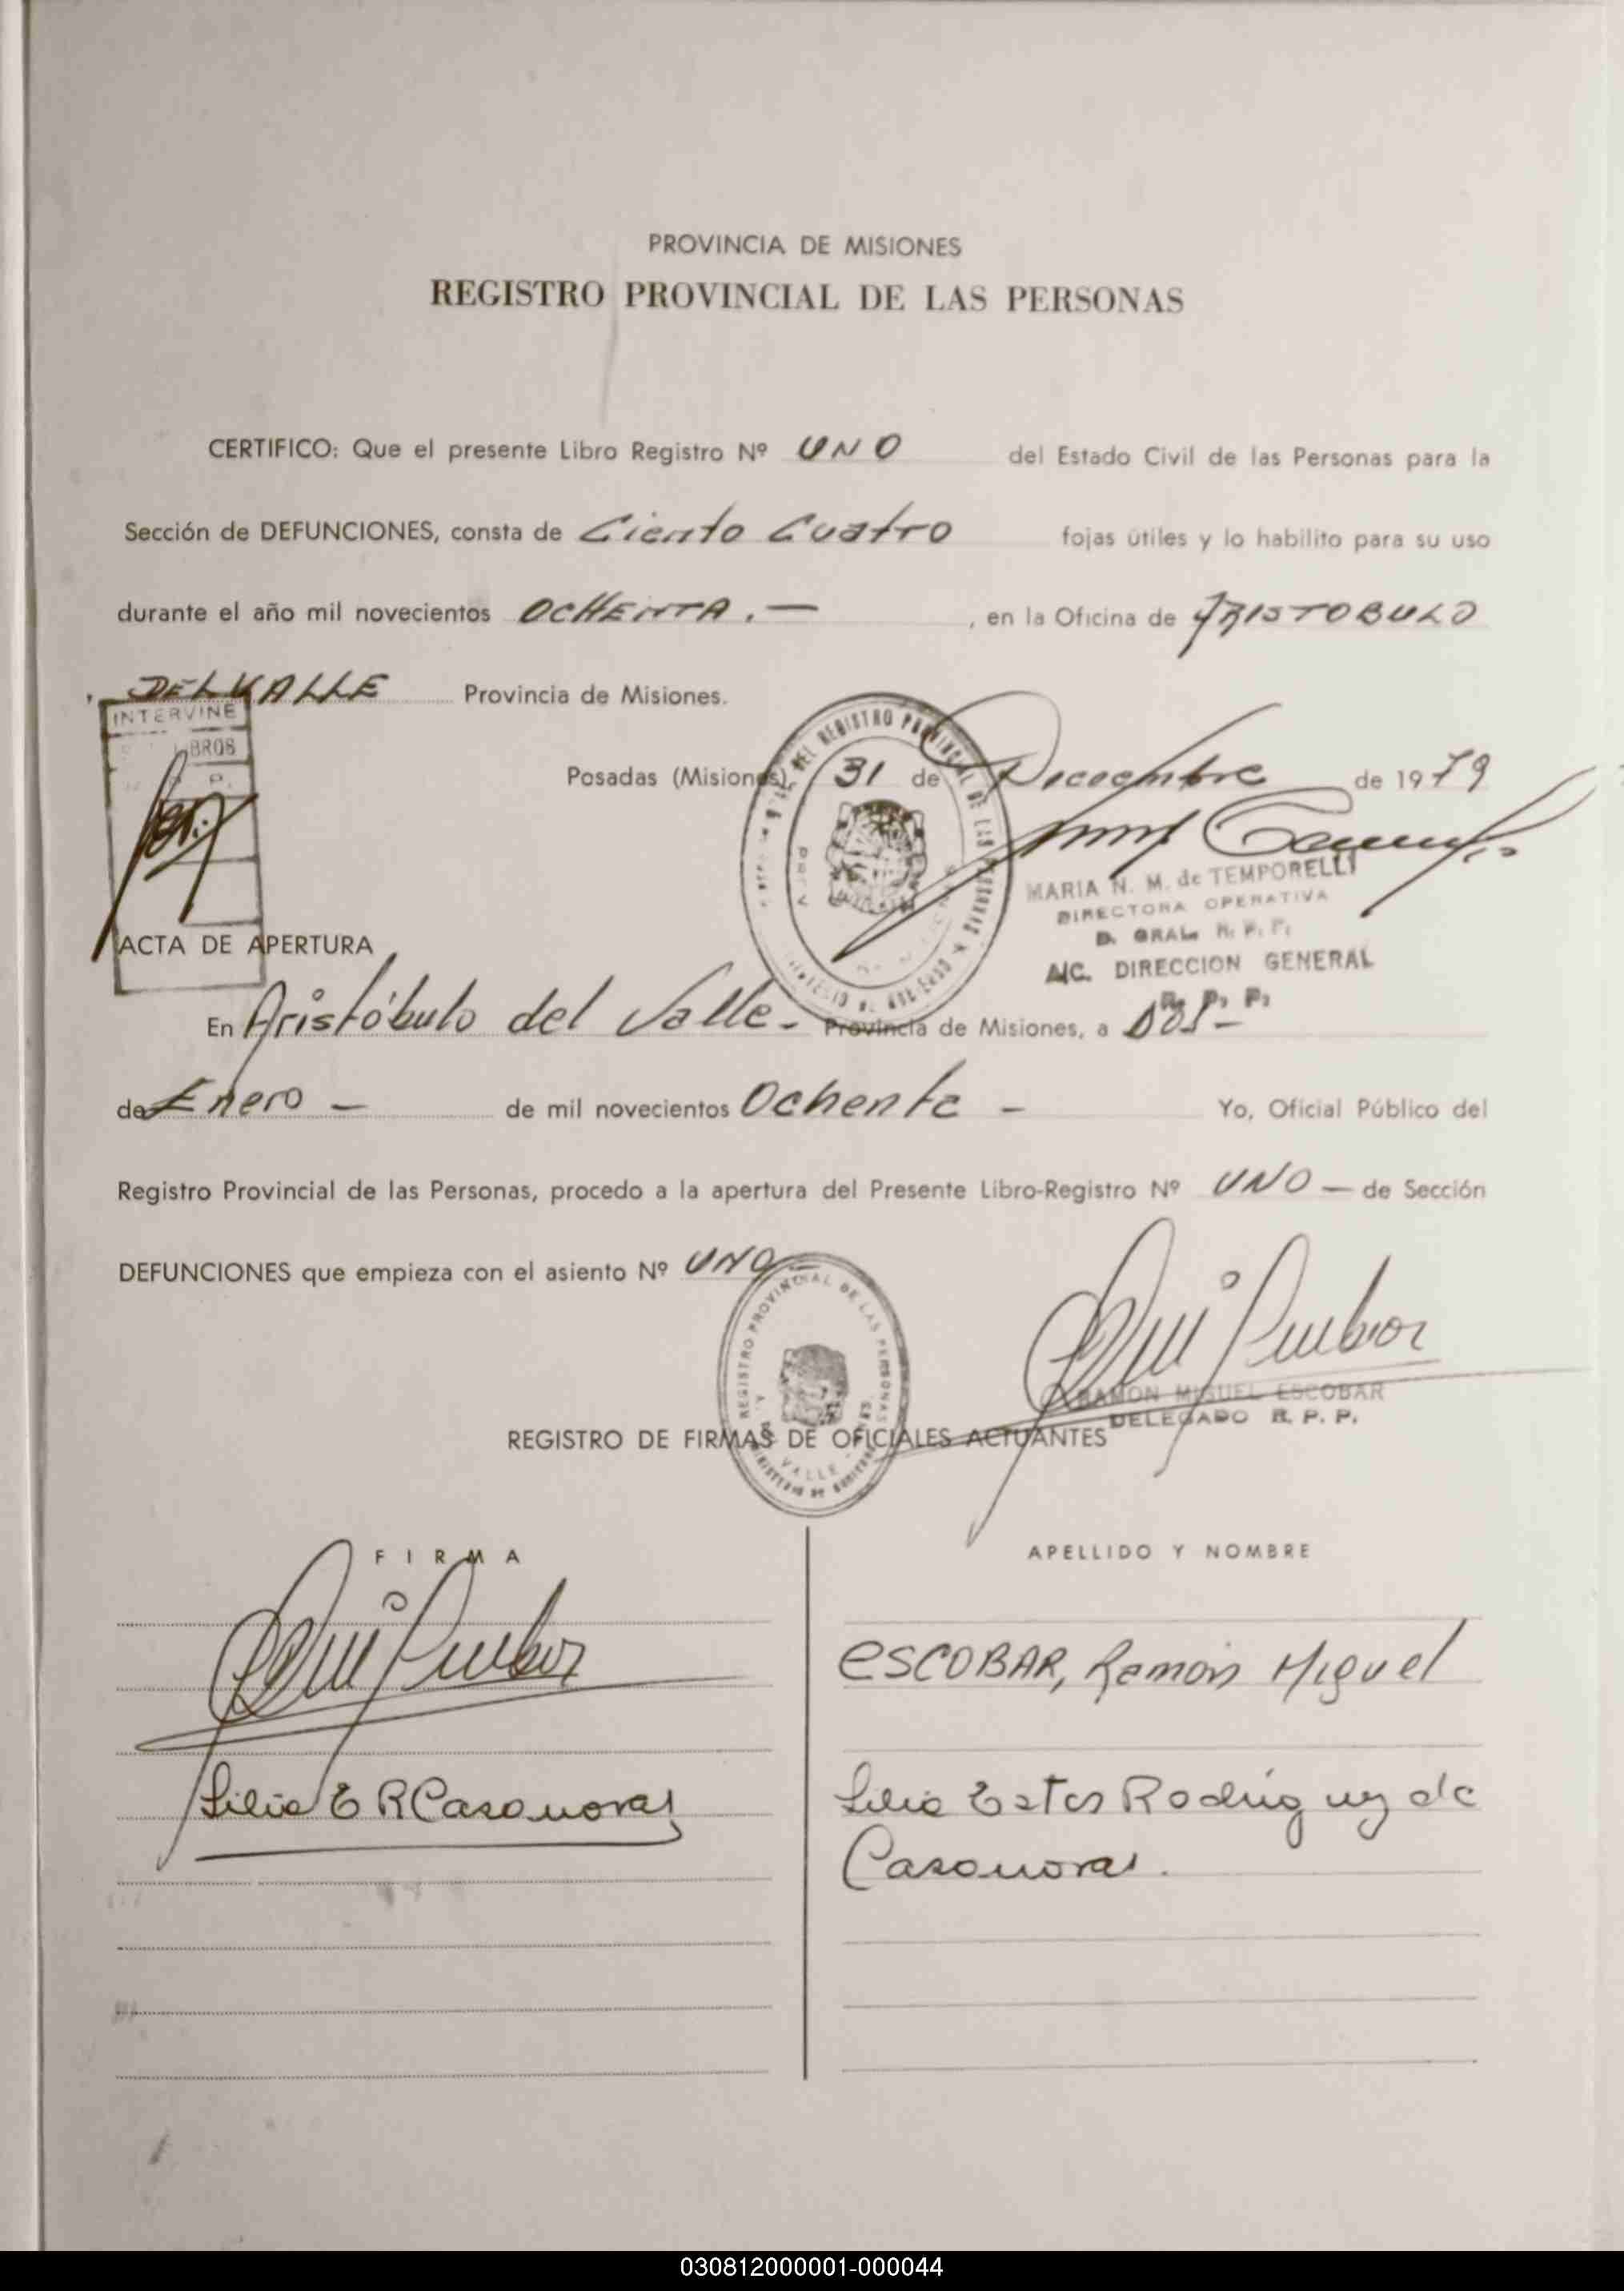 PROVINCIA DE MISIONES
REGISTRO PROVINCIAL DE LAS PERSONAS
CERTIFICO: Que el presente Libro Registro Nº UNO del Estado Civil de las Personas para la
Sección de DEFUNCIONES, consta de Ciento Cuatro fojas útiles y lo habilito para su uso
durante el año mil novecientos OCHENTA.— , en la Oficina de ARISTOBULO
DEL VALLE Provincia de Misiones.
INTERVINE
Posadas (Misiones), 31 de Diciembre de 1979
MARIA N. M. de TEMPORELLI
DIRECTORA OPERATIVA
D. GRAL. R. P. P.
A/C. DIRECCION GENERAL
R. P. P.
ACTA DE APERTURA
En Aristóbulo del Valle- Provincia de Misiones, a DOS-
de Enero - de mil novecientos Ochenta - Yo, Oficial Público del
Registro Provincial de las Personas, procedo a la apertura del Presente Libro-Registro Nº UNO — de Sección
DEFUNCIONES que empieza con el asiento Nº UNO-
REGISTRO PROVINCIAL DE LAS PERSONAS
RAMON MIGUEL ESCOBAR
DELEGADO R. P. P.
REGISTRO DE FIRMAS DE OFICIALES ACTUANTES
FIRMA APELLIDO Y NOMBRE
ESCOBAR, Ramón Miguel
Lilia E R Casanovas Lilia Ester Rodríguez de
Casanovas.
030812000001-000044